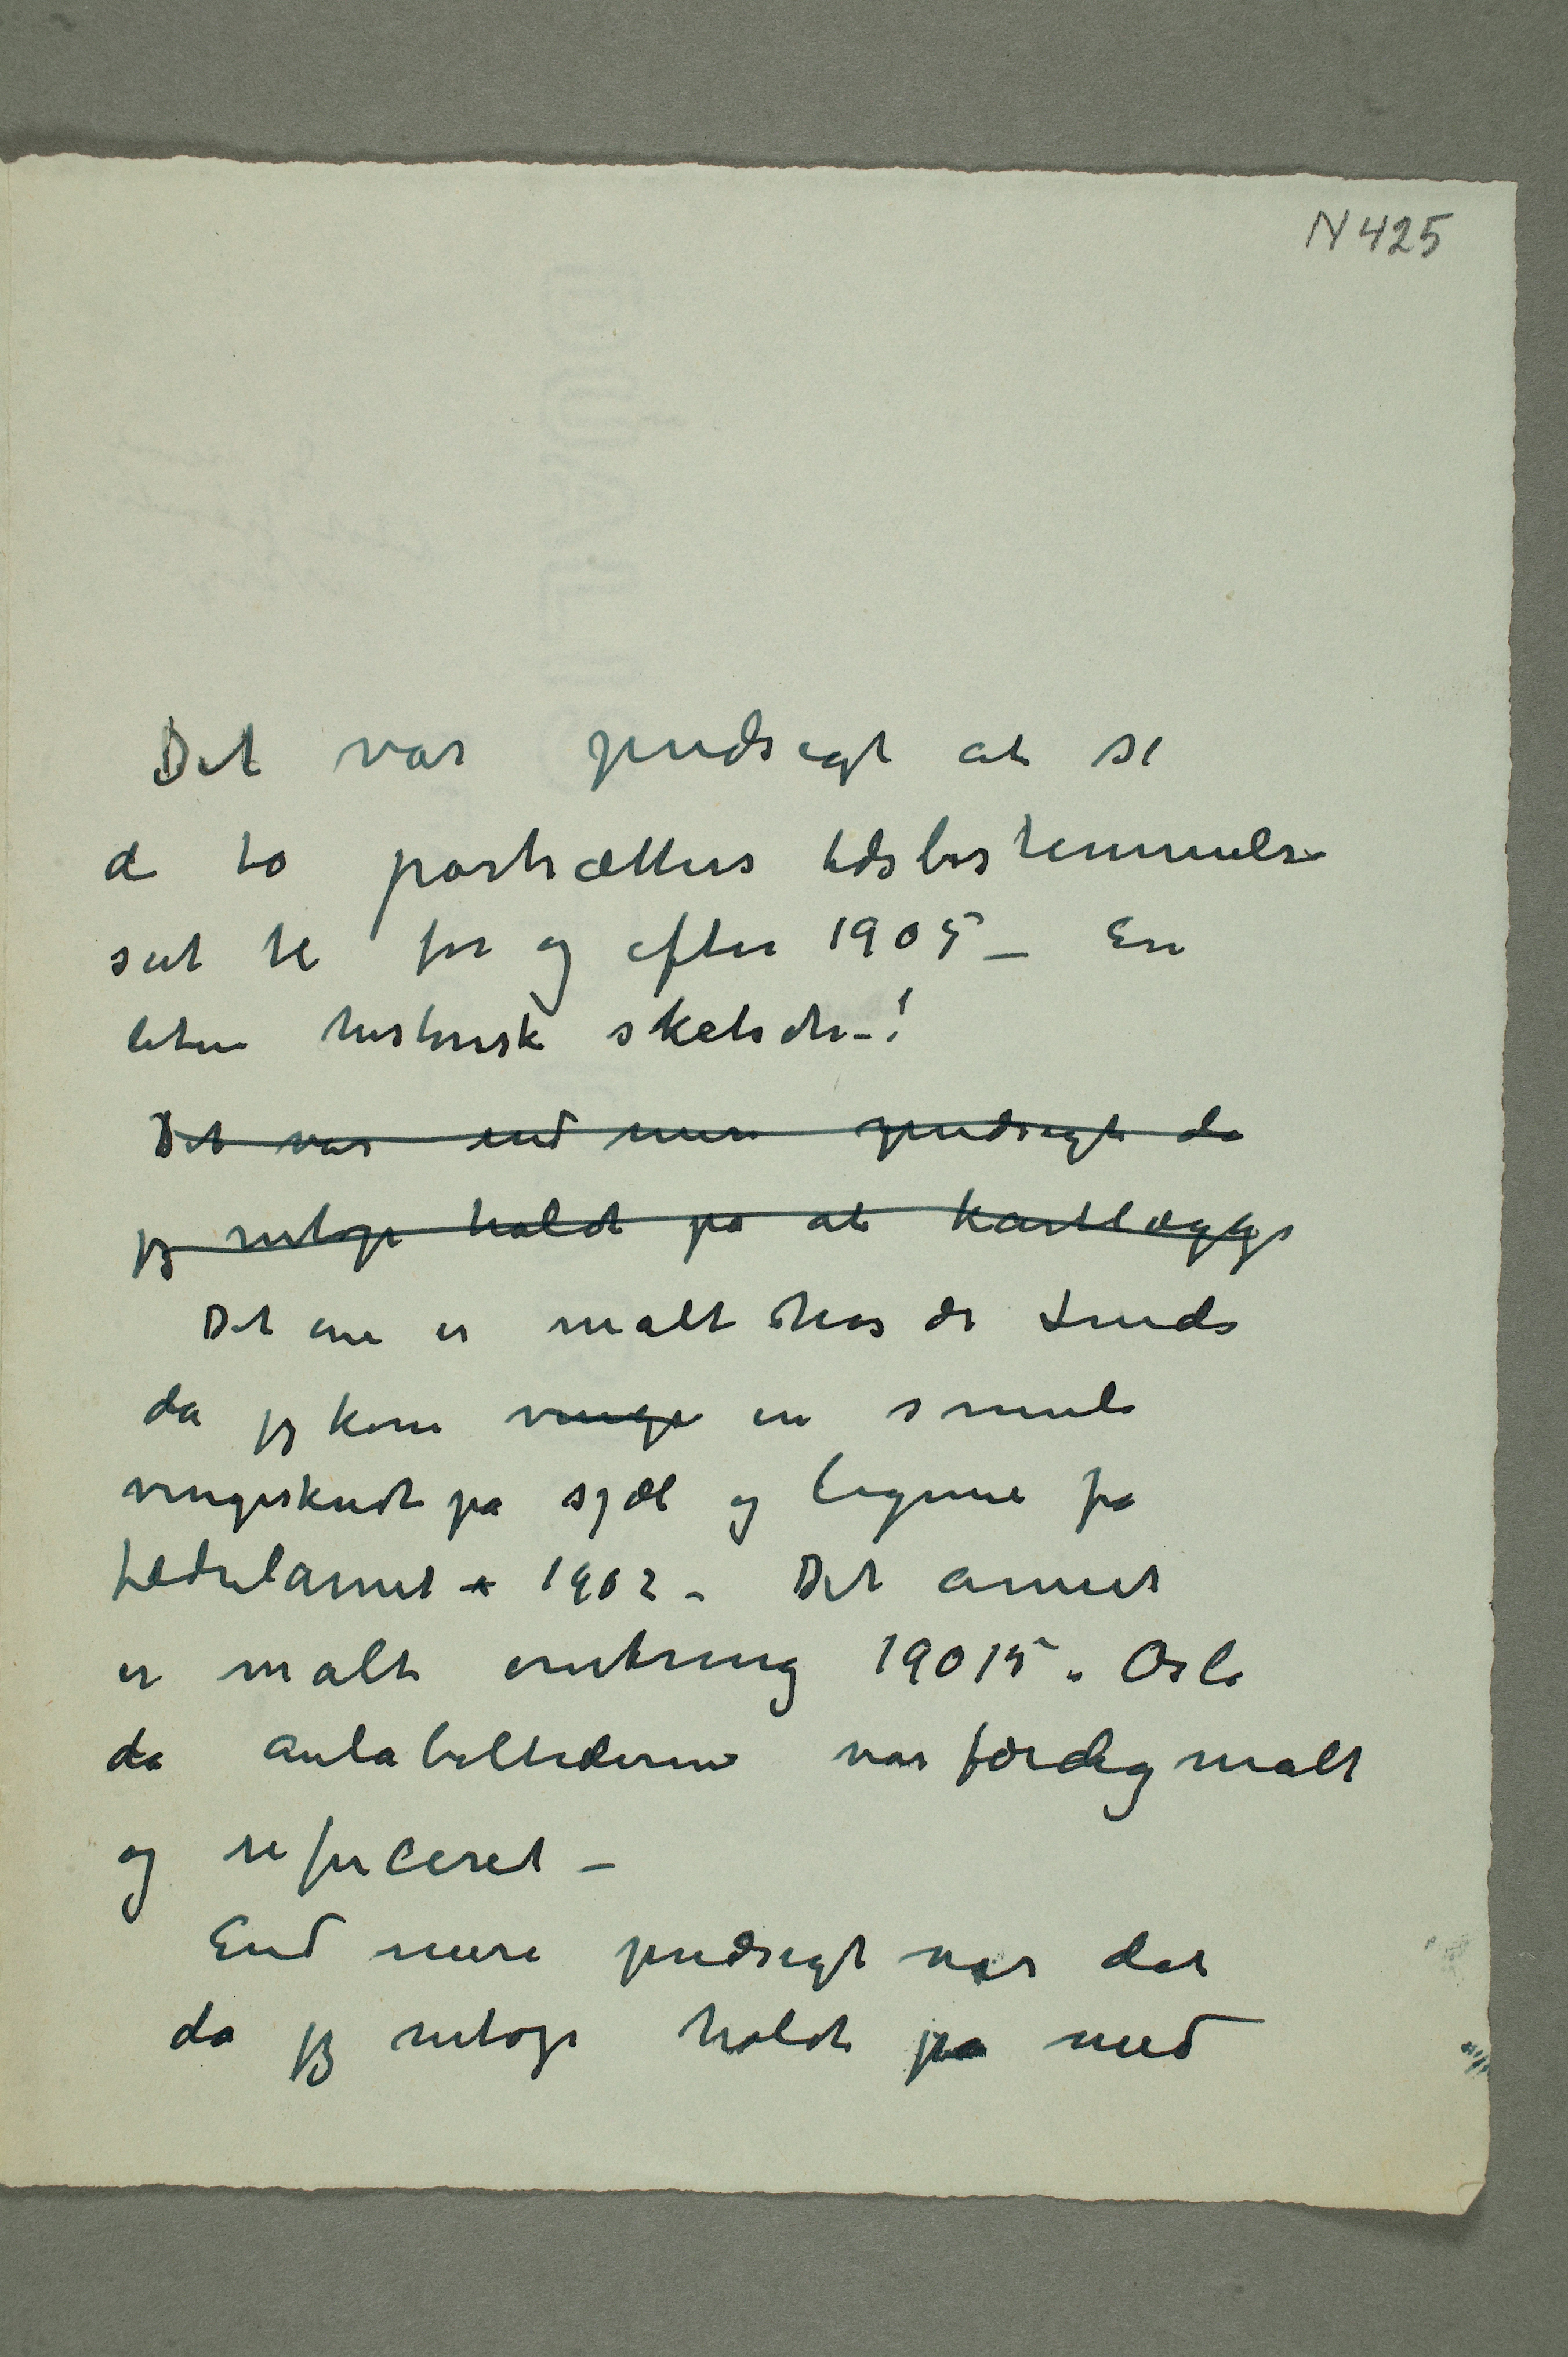 N 425
Det var pudsigt at se
de to portrætters tidsbestemmelse
sat til før og efter 1905 – En
liten historisk sketsch –!
Det var end mere pudsigt da
jeg netop holdt på at kartlægge
Det ene er malt hos dr Linde
da jeg kom vinge en smule
vingeskudt på sjæl og legeme fra
fædrelannet 1902 – Det annet
er malt omkring 19015 i Oslo
da aulabilledene var færdigmalt
og refuceret –
End mere pudsigt var det
da jeg netop holdt på med